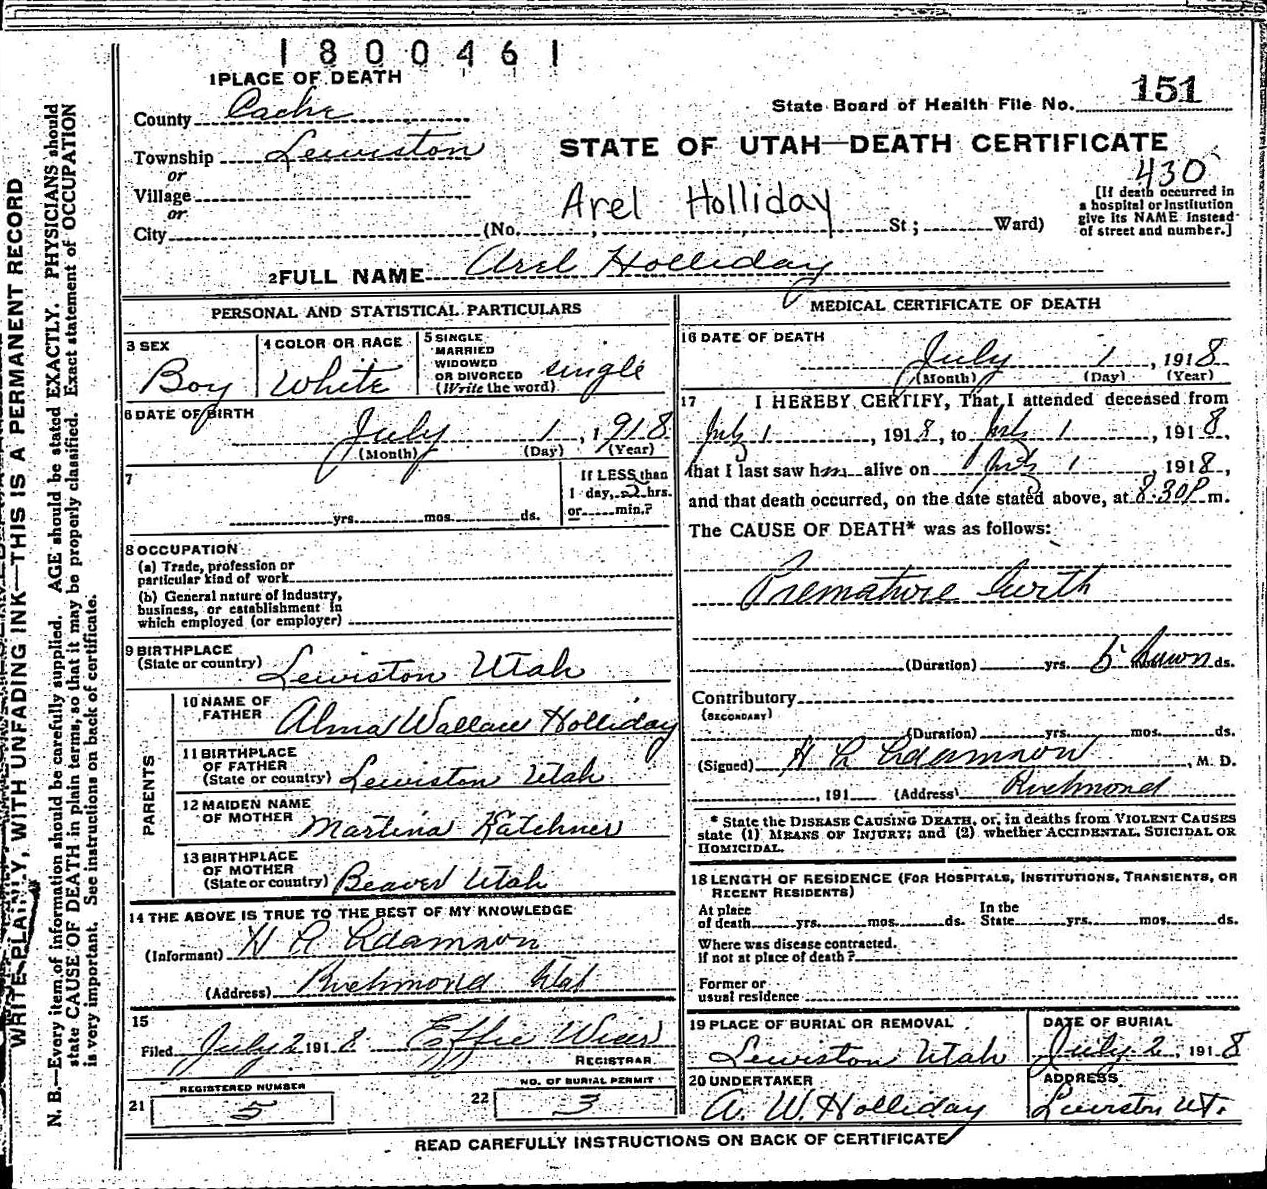 1800461
1 PLACE OF DEATH
County Cache
State Board of Health File No. 151
Township Lewiston
or
STATE OF UTAH—DEATH CERTIFICATE
430
Village
or
City (No. St; Ward)
Arel Holliday
[If death occurred in
a hospital or Institution
give its NAME instead
of street and number.]
2 FULL NAME Arel Holliday
PERSONAL AND STATISTICAL PARTICULARS
3 SEX
Boy
4 COLOR OR RACE
White
5 SINGLE
MARRIED
WIDOWED
OR DIVORCED
(Write the word)
single
6 DATE OF BIRTH
July 1, 1918
(Month) (Day) (Year)
7
yrs. mos. ds.
If LESS than
1 day, 2 hrs.
or min.?
8 OCCUPATION
(a) Trade, profession or
particular kind of work
(b) General nature of Industry,
business, or establishment in
which employed (or employer)
9 BIRTHPLACE
(State or country) Lewiston Utah
PARENTS
10 NAME OF
FATHER Alma Wallace Holliday
11 BIRTHPLACE
OF FATHER
(State or country) Lewiston Utah
12 MAIDEN NAME
OF MOTHER Martina Katchner
13 BIRTHPLACE
OF MOTHER
(State or country) Beaver Utah
14 THE ABOVE IS TRUE TO THE BEST OF MY KNOWLEDGE
(Informant) Adamson
(Address) Richmond
15
Filed July 2 1918 Effie Wiser
REGISTRAR
REGISTERED NUMBER
21 5
NO. OF BURIAL PERMIT
22 3
MEDICAL CERTIFICATE OF DEATH
16 DATE OF DEATH
July 1, 1918
(Month) (Day) (Year)
17 I HEREBY CERTIFY, That I attended deceased from
July 1, 1918, to July 1, 1918,
that I last saw him alive on July 1, 1918,
and that death occurred, on the date stated above, at 8:30P m.
The CAUSE OF DEATH* was as follows:
Premature birth
(Duration) yrs. ds.
Contributory
(SECONDARY)
(Duration) yrs. mos. ds.
(Signed) Adamson, M. D.
, 191 (Address) Richmond
* State the DISEASE CAUSING DEATH, or, in deaths from VIOLENT CAUSES
state (1) MEANS OF INJURY; and (2) whether ACCIDENTAL, SUICIDAL OR
HOMICIDAL.
18 LENGTH OF RESIDENCE (FOR HOSPITALS, INSTITUTIONS, TRANSIENTS, OR
RECENT RESIDENTS)
At place
of death yrs. mos. ds.
In the
State yrs. mos. ds.
Where was disease contracted.
if not at place of death?
Former or
usual residence
19 PLACE OF BURIAL OR REMOVAL
Lewiston Utah
DATE OF BURIAL
July 2, 1918
20 UNDERTAKER
A. W. Holliday
ADDRESS
Lewiston Ut.
READ CAREFULLY INSTRUCTIONS ON BACK OF CERTIFICATE
WRITE PLAINLY, WITH UNFADING INK—THIS IS A PERMANENT RECORD
N. B.—Every item of information should be carefully supplied. AGE should be stated EXACTLY. PHYSICIANS should
state CAUSE OF DEATH in plain terms, so that it may be properly classified. Exact statement of OCCUPATION
is very important. See instructions on back of certificate.